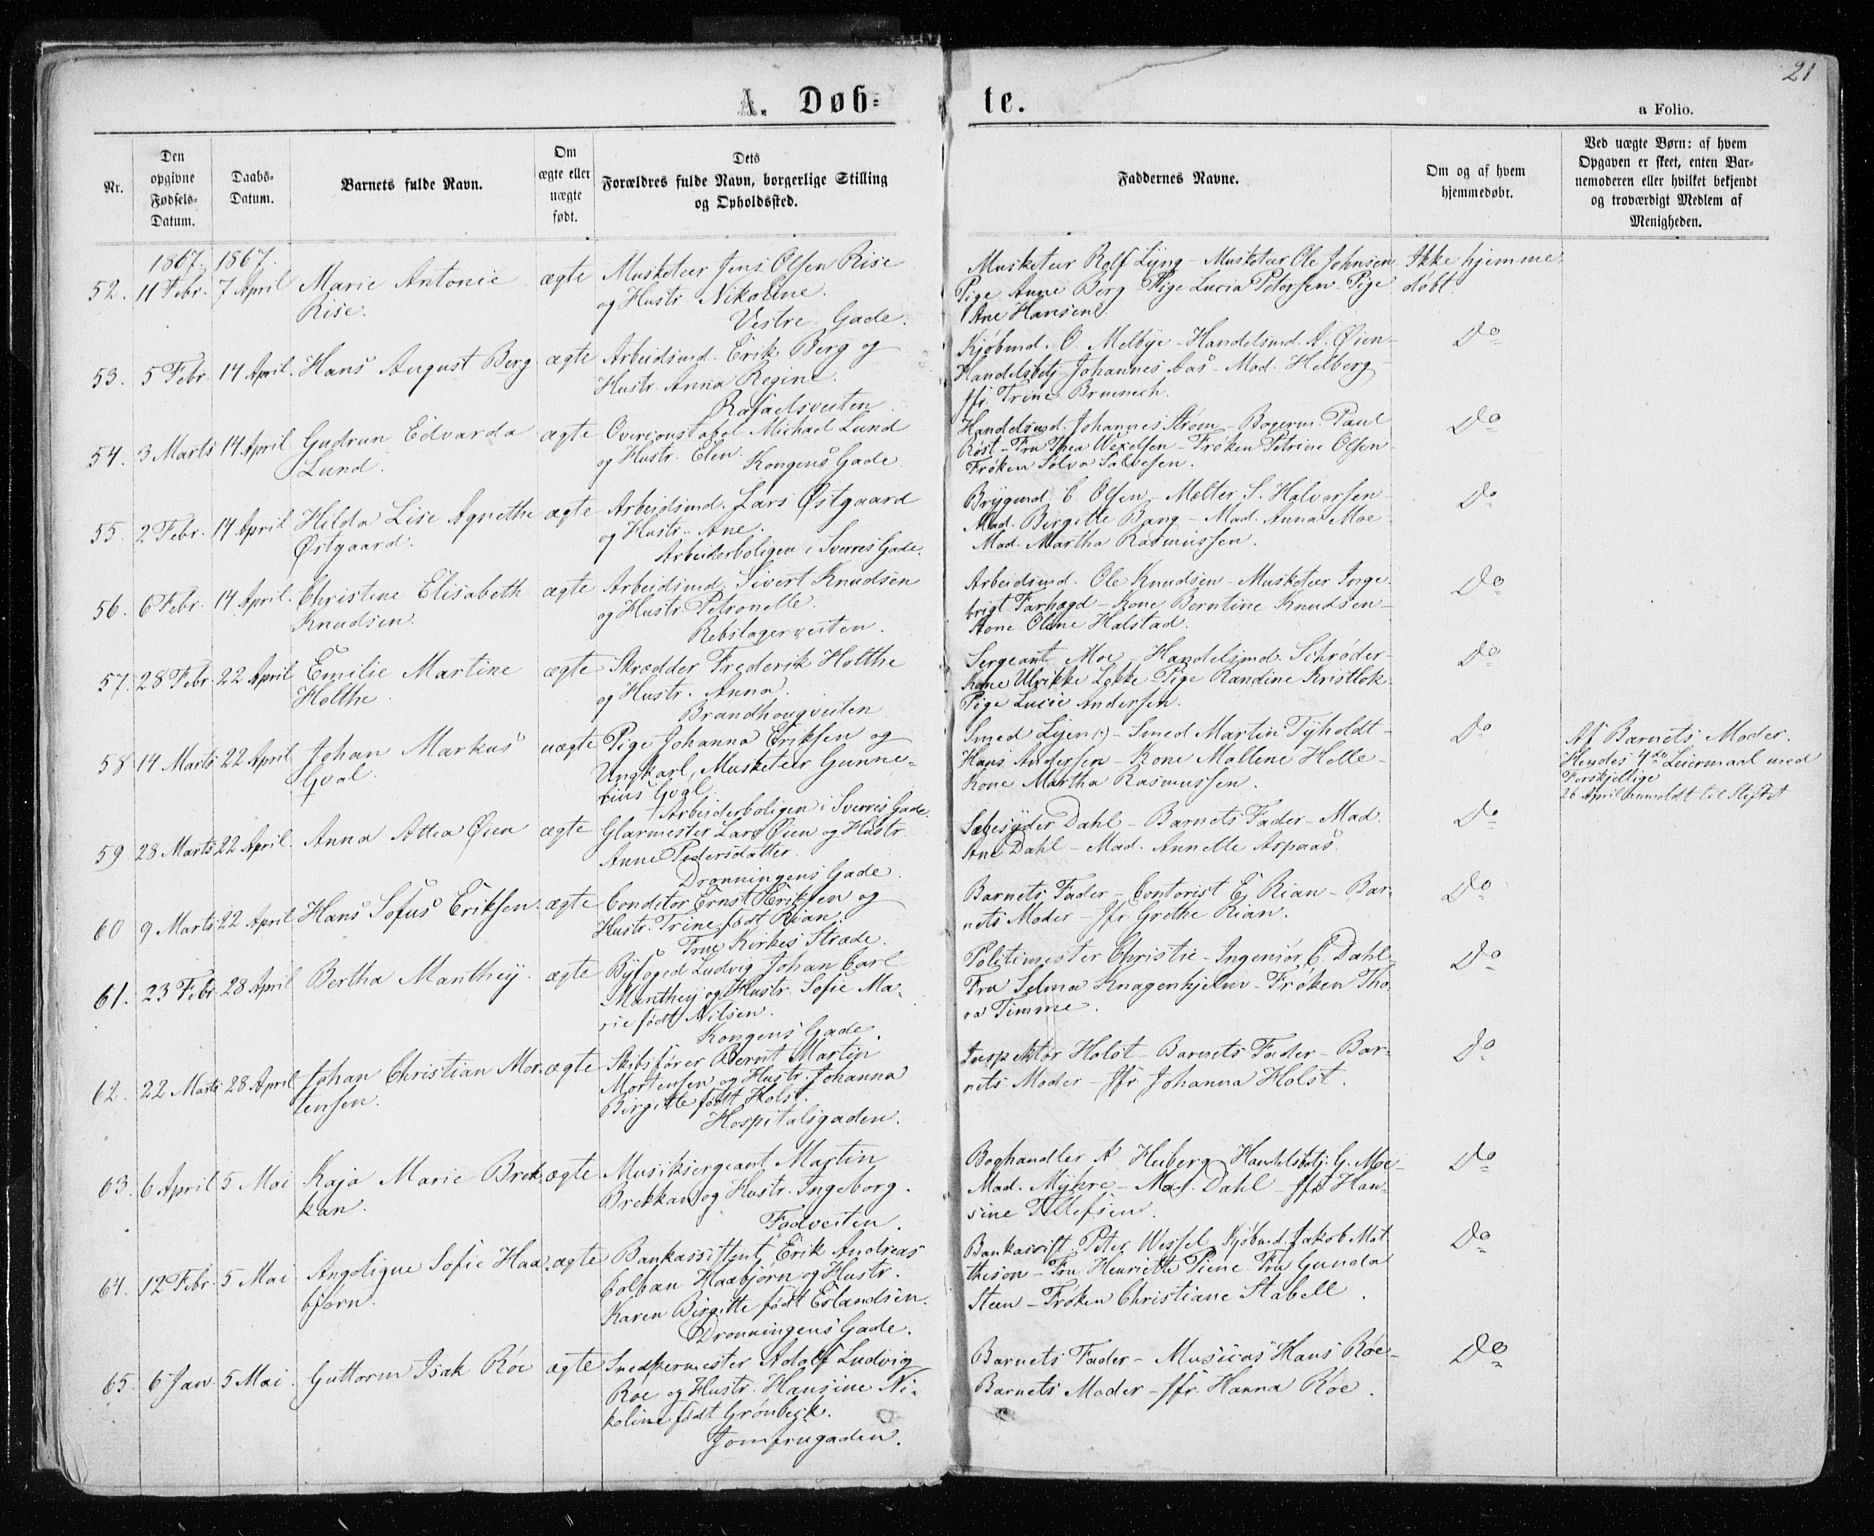 21
A. Døb= te.
a Folio.
Nr.
Den opgivne Fødsels-Datum.
Daabs-Datum.
Barnets fulde Navn.
Om ægte eller uægte født.
Dets Forældres fulde Navn, borgerlige Stilling og Opholdssted.
Faddernes Navne.
Om og af hvem hjemmedøbt.
Ved uægte Børn: af hvem Opgaven er skeet, enten Barnemoderen eller hvilket bekjendt og troværdigt Medlem af Menigheden.
1867. 1867.
52. 11 Febr. 7 April Marie Antonie ægte Musketeer Jens Olsen Rise
Rise. og Hustr. Nikoline.
Vestre Gade.
Musketeer Rolf Lyng - Musketeer Ole Johnsen
Pige Anne Berg - Pige Lucia Petersen - Pige
Ane Hansen.
Ikke hjemme-
døbt.
53. 5 Febr. 14 April. Hans August Berg ægte Arbeidsmd. Erik Berg og
Hustr. Anna Regine.
Rafaelsveiten
Kjøbmd. O. Melbye - Handelsmd. A. Øien -
Handelsbetj. Johannes Aas - Mad. Helberg -
Jfr. Trine
Do
54. 3 Marts 14 April Gudrun Edvarda ægte Overconstabel Michael Lund
Lund. og Hustr. Elen
Kongens Gade
Handelsmd. Johannes Strøm Bogerm. Paul
Røst - Fru Thea Wexelsen - Frøken Petrine Olsen -
Frøken Solva Salvesen.
Do
55. 2 Febr. 14 April Hilda Lise Agnethe ægte Arbeidsmd. Lars Østgaard
Østgaard. og Hustr. Ane.
Arbeiderboligen i Sverres Gade.
Brygmd. C. Olsen, Melter S. Halvorsen -
Mad. Birgitte Bang - Mad. Anna Moe -
Mad. Martha Rasmussen.
Do
56. 6 Febr. 14 April. Christine Elisabeth ægte Arbeidsmd. Sivert Knudsen
Knudsen. og Hustr. Petronelle
Rebslagerveiten.
Arbeidsmd. Ole Knudsen - Musketeer Inge-
brigt - Kone Berntine Knudsen -
Kone Oline Halstad.
Do
57. 28 Febr. 22 April Emilie Martine ægte Skrædder Frederik Holthe
Holthe. og Hustr. Anna.
Brandhougveiten
Sergeant Moe - Handelsmd. Schrøder -
Kone Ulrikke Løkke - Pige Randine Kristlok -
Pige Lucie Andersen.
Do
58 14 Marts 22 April Johan Markus uægte Pige Johanna Eriksen og
Gval. Ungkarl, Musketeer Gunne-
rius Gval.
Arbeiderboligen i Sverres Gade.
Smed Lyen (?) - Smed Martin Tyholdt -
Hans Andersen - Kone Mallene Helle -
Kone Martha Rasmussen.
Do
Af Barnets Moder.
Hendes 4de Leiermaal med
Forskjellige
26 April anmeldt til Stiftet
59 28 Marts 22 April. Anna Attea Øien ægte Glarmester Lars Øien og Hustr.
Anne Pedersdatter.
Dronningens Gade.
Sæbesyder Dahl - Barnets Fader - Mad.
Ane Dahl - Mad. Annette Aspaas.
Do
60 9 Marts 22 April Hans Sofus Eriksen. ægte Conditor Ernst Eriksen og
Hustr. Trine født Rian.
Frue Kirkes Stræde.
Barnets Fader - Contorist E. Rian - Bar-
nets Moder - Jfr Grethe Rian.
Do
61. 23 Febr 28 April Bertha Manthey. ægte Byfoged Ludvig Johan Carl
Manthey og Hustr. Sofie Ma-
rie født Nilsen.
Kongens Gade.
Politimester Christie - Ingeniør C. Dahl
Fru Selma Knagenhjelm - Frøken Tho-
ra Timme.
Do
62. 22 Marts 28 April Johan Christian Mor- ægte Skibsfører Bernt Martin
tensen. Mortensen og Hustr. Johanna
Birgitte født Holst.
Hospitalsgaden.
Inspektør Holst - Barnets Fader - Bar-
nets Moder - Jfr Johanna Holst.
Do
63. 6 April 5 Mai Kaja Marie Brek- ægte Musiksergeant Martin
kan. Brekkan og Hustr. Ingeborg.
Fadveiten.
Boghandler A Huberg Handelsbetj. G. Moe -
Mad. Myhre - Mad. Dahl - Jfr Han-
sine Tellefsen.
Do
64. 12 Febr 5 Mai Angeligue Sofie Haa- ægte Bankassistent Erik Andreas
bjørn. Colban Haabjørn og Hustr.
Karen Birgitte født Erlandsen.
Dronningens Gade.
Bankassist. Peter Wessel, Kjøbmd. Jakob Mat
thison - Fru Henriette Piene - Fru Gunda
Steen - Frøken Christiane Stabell.
Do
65. 6 Jan 5 Mai. Guttorm Isak Røe ægte Snedkermester Adolf Ludvig
Røe og Hustr. Hansine Ni-
koline født Grønbeck.
Jomfrugaden.
Barnets Fader - Musicus Hans Røe -
Barnets Moder - Jfr. Hanna Røe.
Do